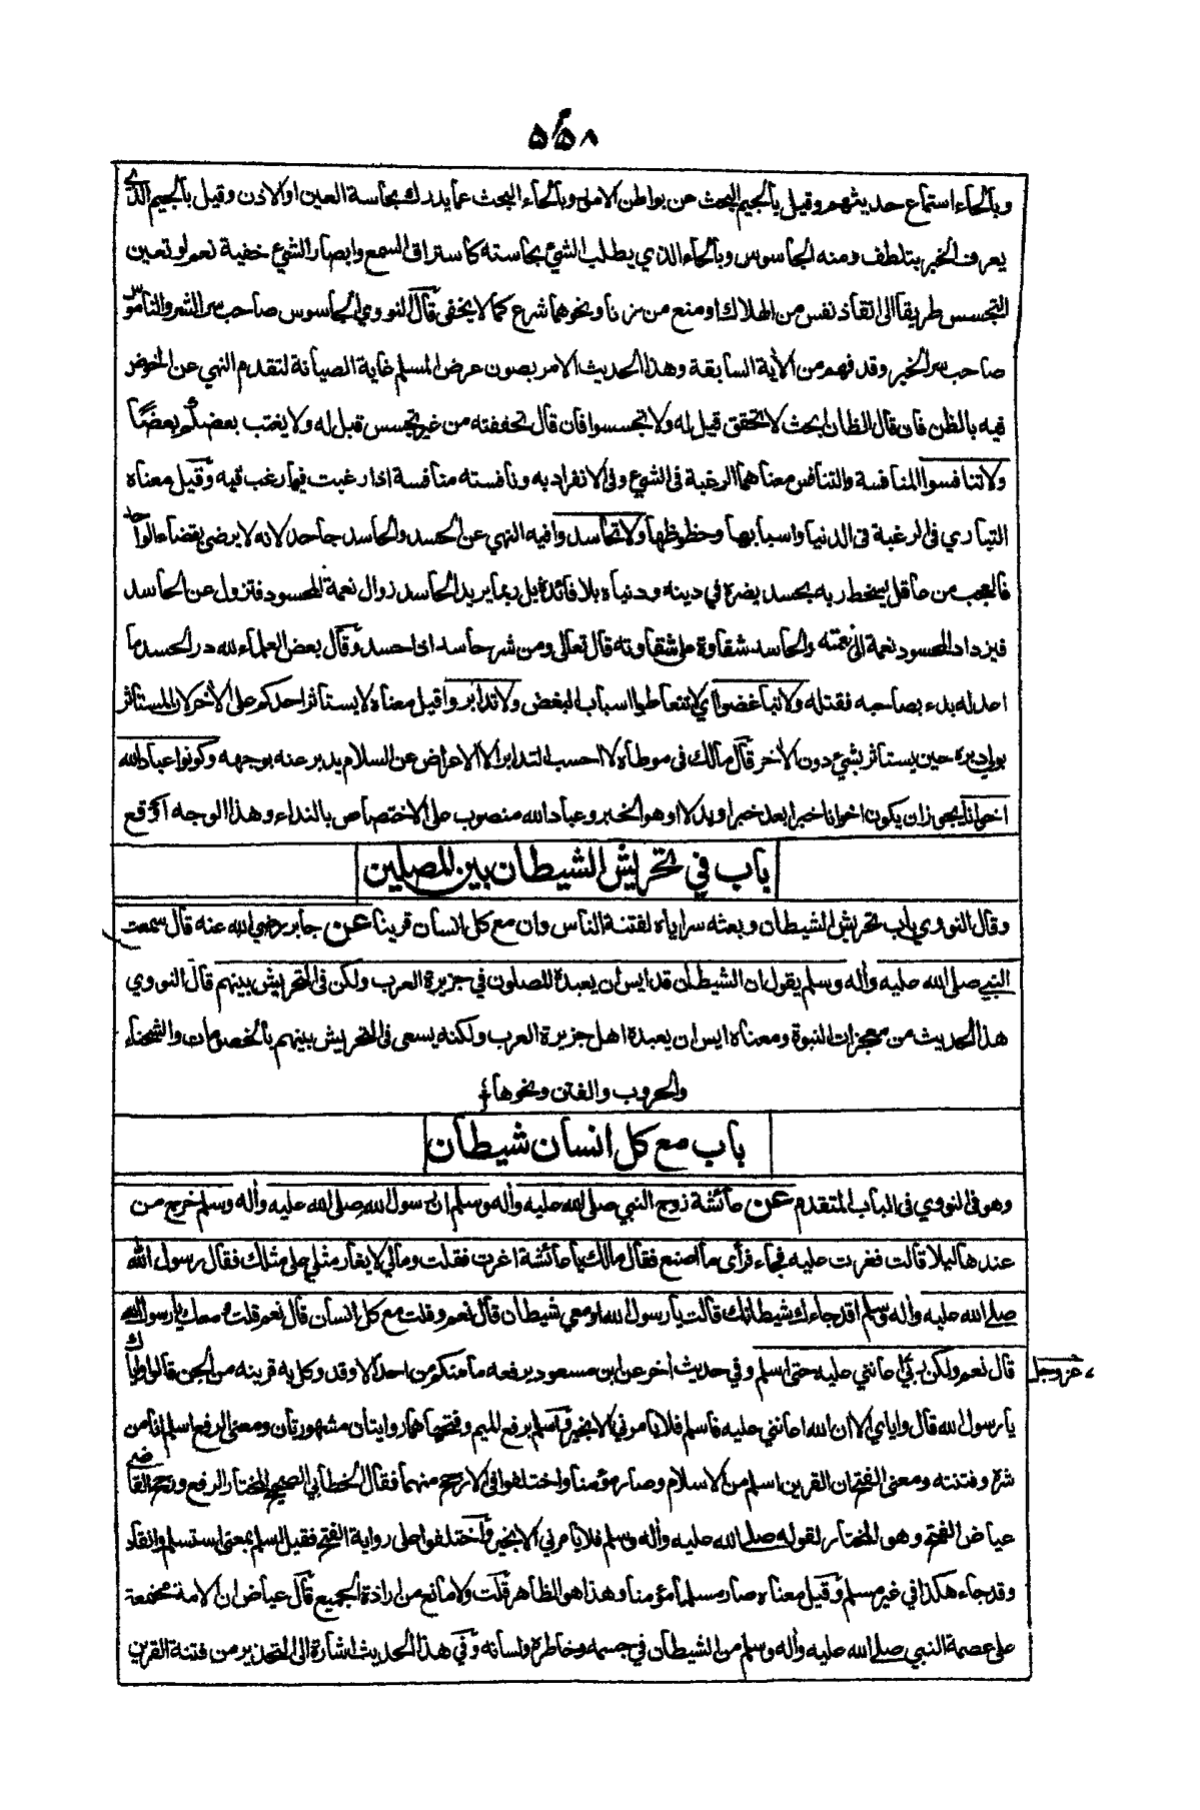 ۵۵۸
وبالحاء استماع حديثهم وقيل بالجيم البحث عن بواطن الامور وبالحاء البحث عما يدرك بحاسة العين او الاذن وقيل بالجيم الذي
يعرف الخبر بتلطف ومنه الجاسوس وبالحاء الذي يطلب الشئ بحاسته كاستراق السمع وابصار الشئ خفية نعم لو تعين
التجسس طريقا الى انقاذ نفس من الهلاك او منع من زنا ونحوهما شرع كما لا يخفى قال النووي الجاسوس صاحب سر الشر والناموس
صاحب سر الخير وقد فهم من الأية السابقة وهذا الحديث الامر بصون عرض المسلم غاية الصيانة لتقدم النهي عن الخوض
فيه بالظن فان قال الظان ابحث لاتحقق قيل له ولا تجسسوا فان قال تحققته من غير تجسس قيل له ولا يغتب بعضكم بعضًا
ولا تنافسوا المنافسة والتنافس معناهما الرغبة فى الشئ وفى الانفراد به ونافسته منافسة اذا رغبت فيما رغب فيه وقيل معناه
التباري فى الرغبة فى الدنيا واسبابها وحظوظها ولا تحاسدوا فيه النهي عن الحسد والحاسد جاحد لانه لا يرضى بقضاء الواحد
فالعجب من عاقل يسخط ربه بحسد يضره في دينه ودنياه بلا فائدة بل ربما يريد الحاسد زوال نعمة المحسود فتزول عن الحاسد
فيزداد المحسود نعمة الى نعمته والحاسد شقاوة على شقاوته قال تعالى ومن شر حاسد اذا حسد وقال بعض العلماء لله در الحسد ما
اعدله بدء بصاحبه فقتله ولا تباغضوا اي لا تتعاطوا اسباب البغض ولا تدابروا قيل معناه لا يستأثر احدكم على الأخر لان المستأثر
يولي دبره حين يستأثر بشئ دون الأخر قال مالك فى موطأه لا احسب التدابر الا الاعراض عن السلام يدبر عنه بوجهه وكونوا عباد الله
اخوانا يجوز ان يكون اخوانا خبرا بعد خبر او بدلا او هو الخبر وعباد الله منصوب على الاختصاص بالنداء وهذا الوجه اوقع
باب في تحريش الشيطان بين المصلين
وقال النووي باب تحريش الشيطان وبعثه سراياه لفتنة الناس وان مع كل انسان قرينا عن جابر رضي الله عنه قال سمعت
النبي صلى الله عليه وأله وسلم يقول ان الشيطان قد ايس ان يعبده المصلون في جزيرة العرب ولكن فى التحريش بينهم قال النووي
هذا الحديث من معجزات النبوة ومعناه ايس ان يعبده اهل جزيرة العرب ولكنه يسعى فى التحريش بينهم بالخصومات والشحناء
والحروب والفتن ونحوها
باب مع كل انسان شيطان
وهو فى النووي فى الباب المتقدم عن عائشة زوج النبي صلى الله عليه وأله وسلم ان رسول الله صلى الله عليه وأله وسلم خرج من
عندها ليلا قالت فغرت عليه فجاء فرأى ما اصنع فقال مالك يا عائشة اغرت فقلت ومالي لا يغار مثلي على مثلك فقال رسول الله
صلى الله عليه وأله وسلم اقد جاءك شيطانك قالت يا رسول الله اومعي شيطان قال نعم وقلت مع كل انسان قال نعم قلت ومعك يا رسول الله
قال نعم ولكن ربي اعانني عليه حتى اسلم وفي حديث أخر عن ابن مسعود يرفعه ما منكم من احد الا وقد وكل به قرينه من الجن قالوا واياك
عز وجل
يا رسول الله قال واياي الا ان الله اعانني عليه فاسلم فلا يامرني الا بخير فاسلم برفع الميم وفتحها هما روايتان مشهورتان ومعنى الرفع اسلم انا من
شره وفتنته ومعنى الفتح ان القرين اسلم من الاسلام وصار مؤمنا واختلفوا فى الارجح منهما فقال الخطابي الصحيح المختار الرفع ورجح القاضي
عياض الفتح وهو المختار لقوله صلى الله عليه وأله وسلم فلا يامرني الا بخير واختلفوا على رواية الفتح فقيل اسلم بمعنى استسلم وانقاد
وقد جاء هكذا في غير مسلم وقيل معناه صار مسلما مؤمنا وهذا هو الظاهر قلت ولا مانع من ارادة الجميع قال عياض ان الامة مجتمعة
على عصمة النبي صلى الله عليه وأله وسلم من الشيطان في جسمه وخاطره ولسانه وفي هذا الحديث اشارة الى التحذير من فتنة القرين